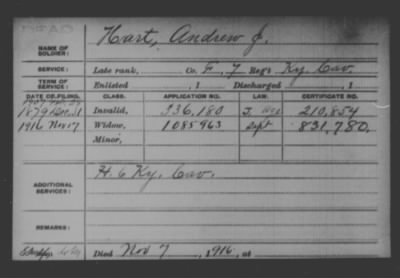 DEAD
NAME OF SOLDIER: Hart, Andrew J.
SERVICE: Late rank, Co. F, 7 Reg't Ky. Cav.
TERM OF SERVICE: Enlisted 1 Discharged , 1
DATE OF FILING. CLASS. APPLICATION NO. LAW. CERTIFICATE NO.
1879 Dec. 31 Invalid, 336,180 210,854
1916 Nov 17 Widow, 1085963 Sept 831,780.
Minor,
ADDITIONAL SERVICES: H. 6 Ky. Cav.
REMARKS:
Died Nov 7, 1916, at